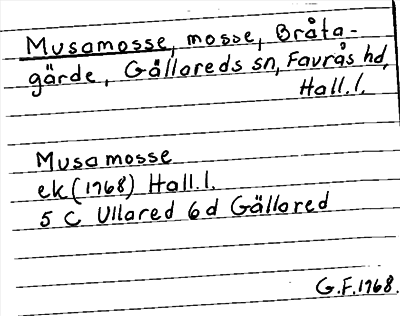 Musamosse, mosse, Bråta-
gärde, Gällareds sn, Favrås hd,
Hall.l.
Musamosse
ek (1968) Hall.l.
5 C Ullared 6d Gällared
G.F.1968.